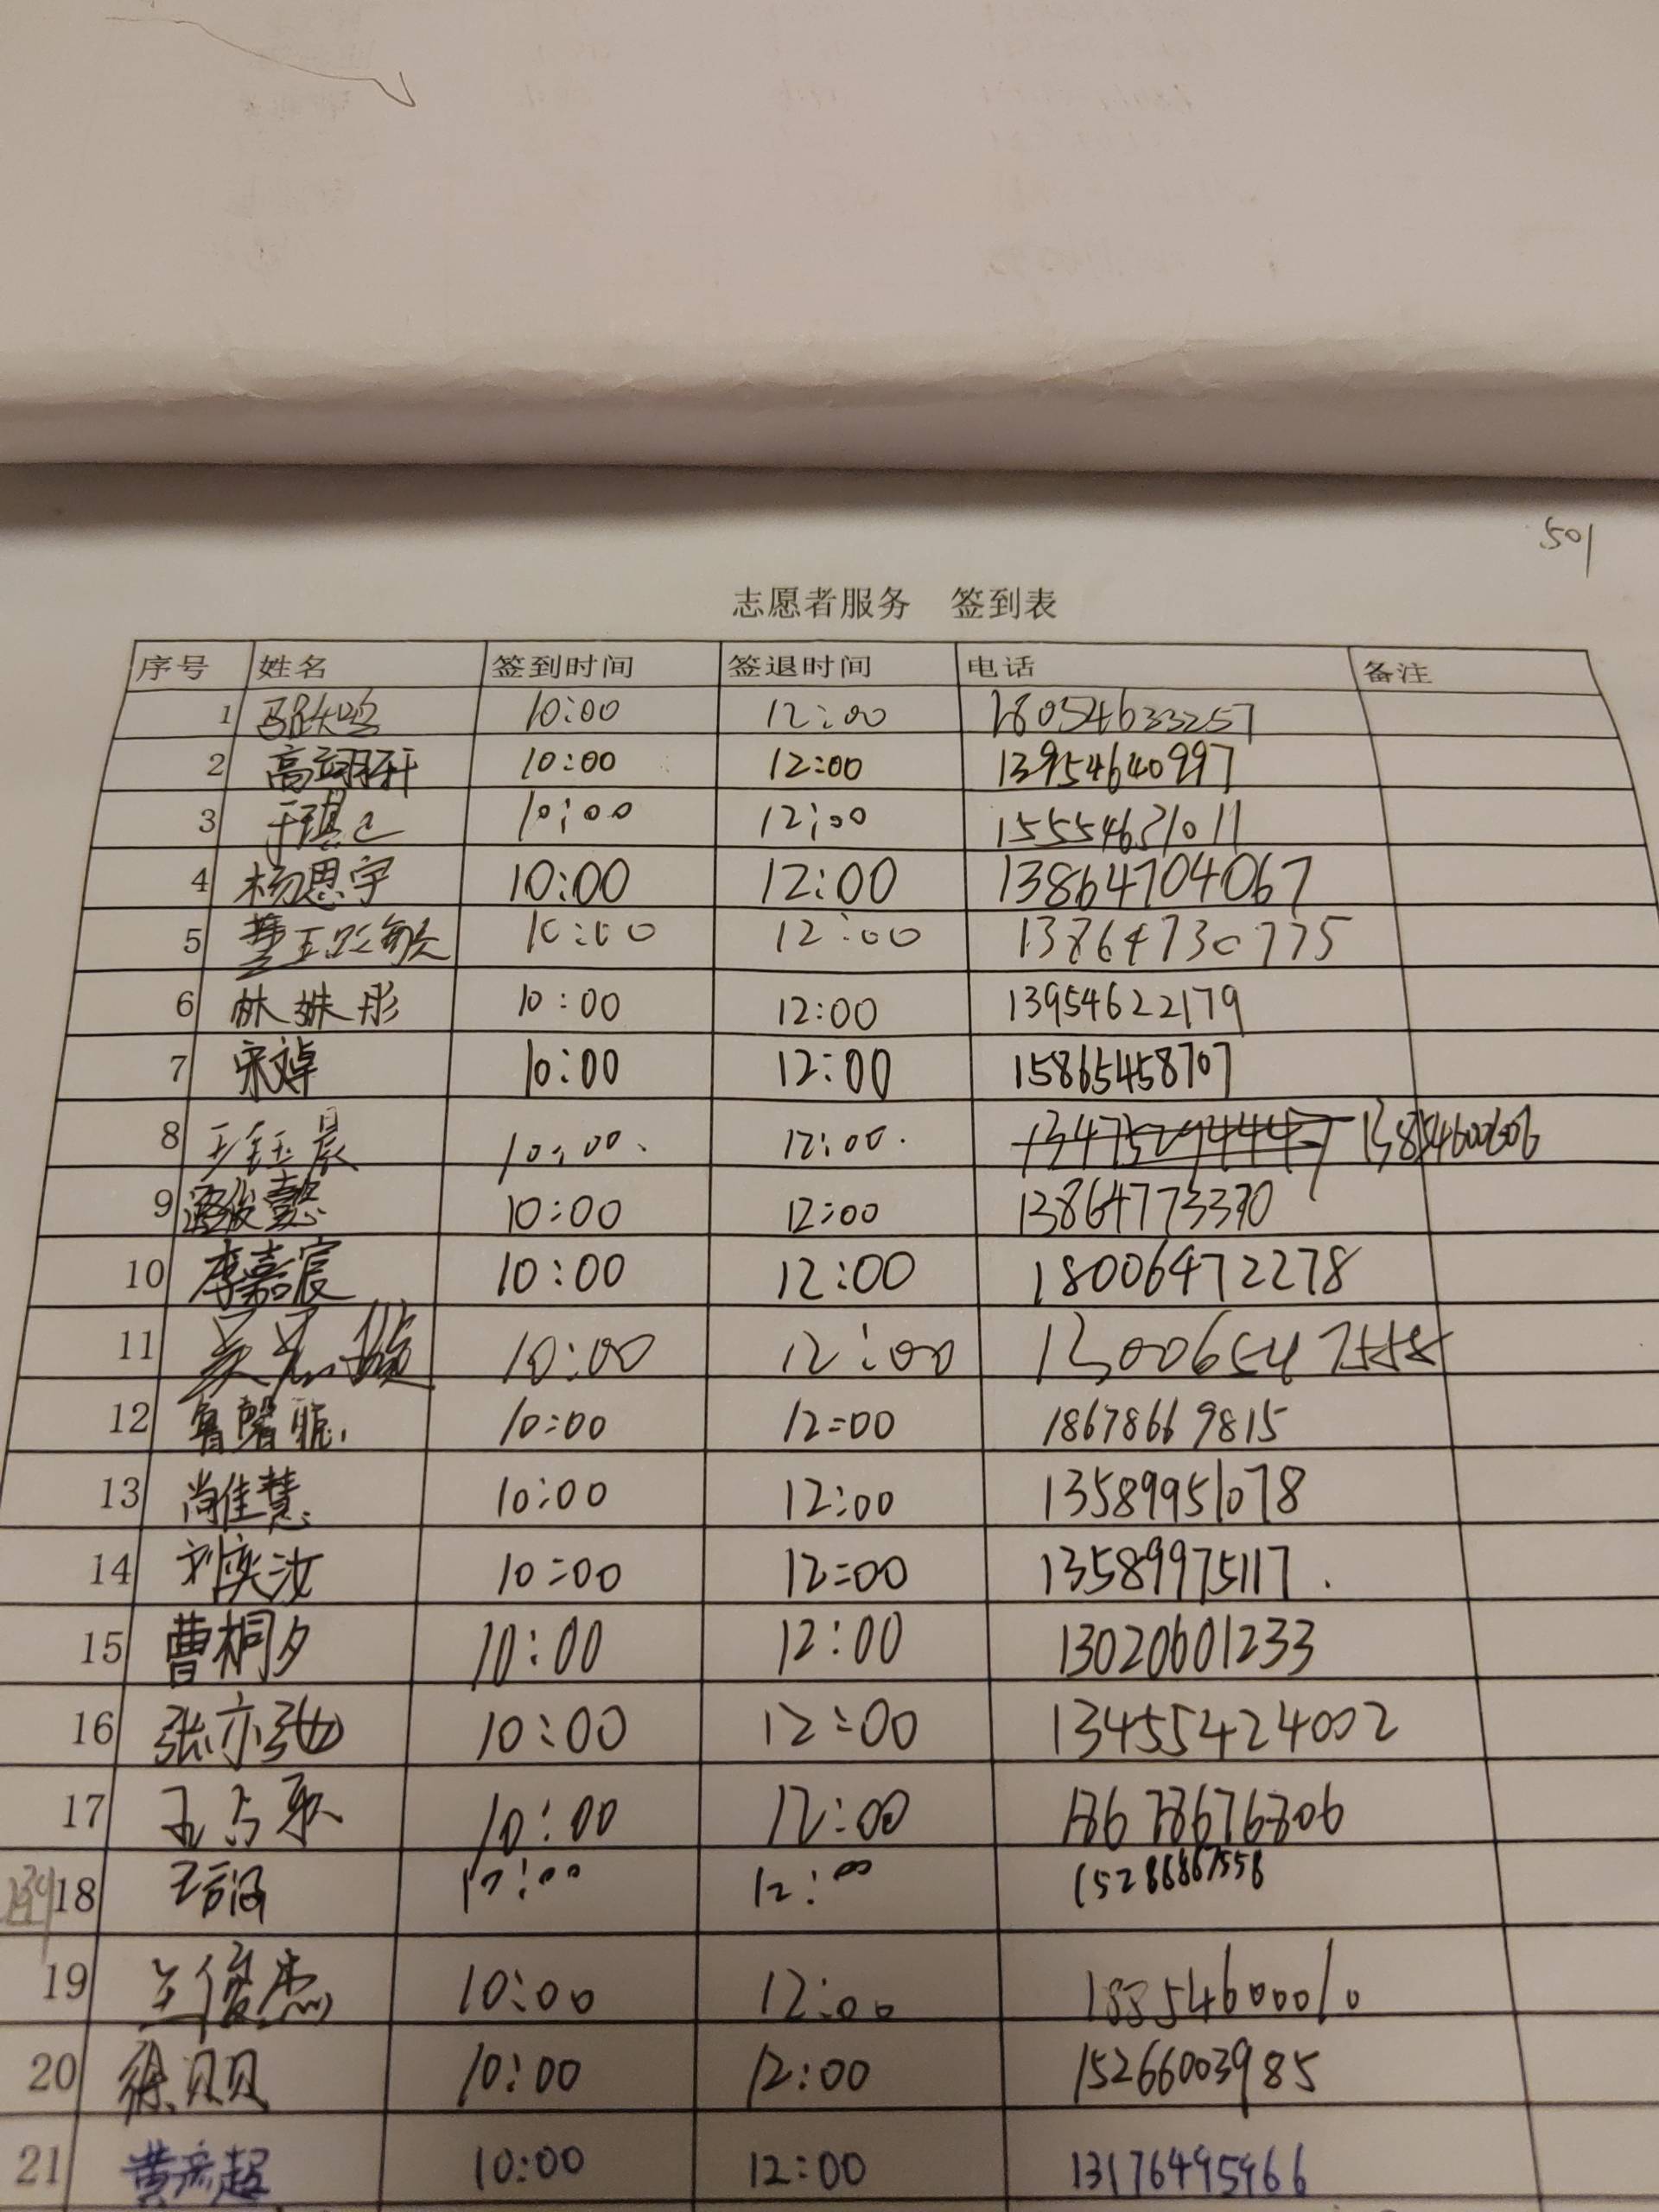 501
志愿者服务 签到表
序号 姓名 签到时间 签退时间 电话 备注
1 10:00 12:00 18054633257
2 高翊轩 10:00 12:00 13954640997
3 于琪 10:00 12:00 15554631011
4 杨思宇 10:00 12:00 13864704067
5 10:00 12:00 13864730775
6 林姝彤 10:00 12:00 13954622179
7 宋文卓 10:00 12:00 15865458707
8 王钰晨 10:00 12:00 13854600606
9 俊懿 10:00 12:00 13864773370
10 李嘉宸 10:00 12:00 18006472278
11 10:00 12:00
12 鲁馨 10:00 12:00 18678669815
13 尚佳慧 10:00 12:00 13589951078
14 刘奕汝 10:00 12:00 13589975117
15 曹桐夕 10:00 12:00 13020601233
16 张亦弛 10:00 12:00 13455424002
17 10:00 12:00 18678676306
18 10:00 12:00 15286867558
19 兰俊杰 10:00 12:00 18854600010
20 徐贝贝 10:00 12:00 15266003985
21 黄彦超 10:00 12:00 13176495966